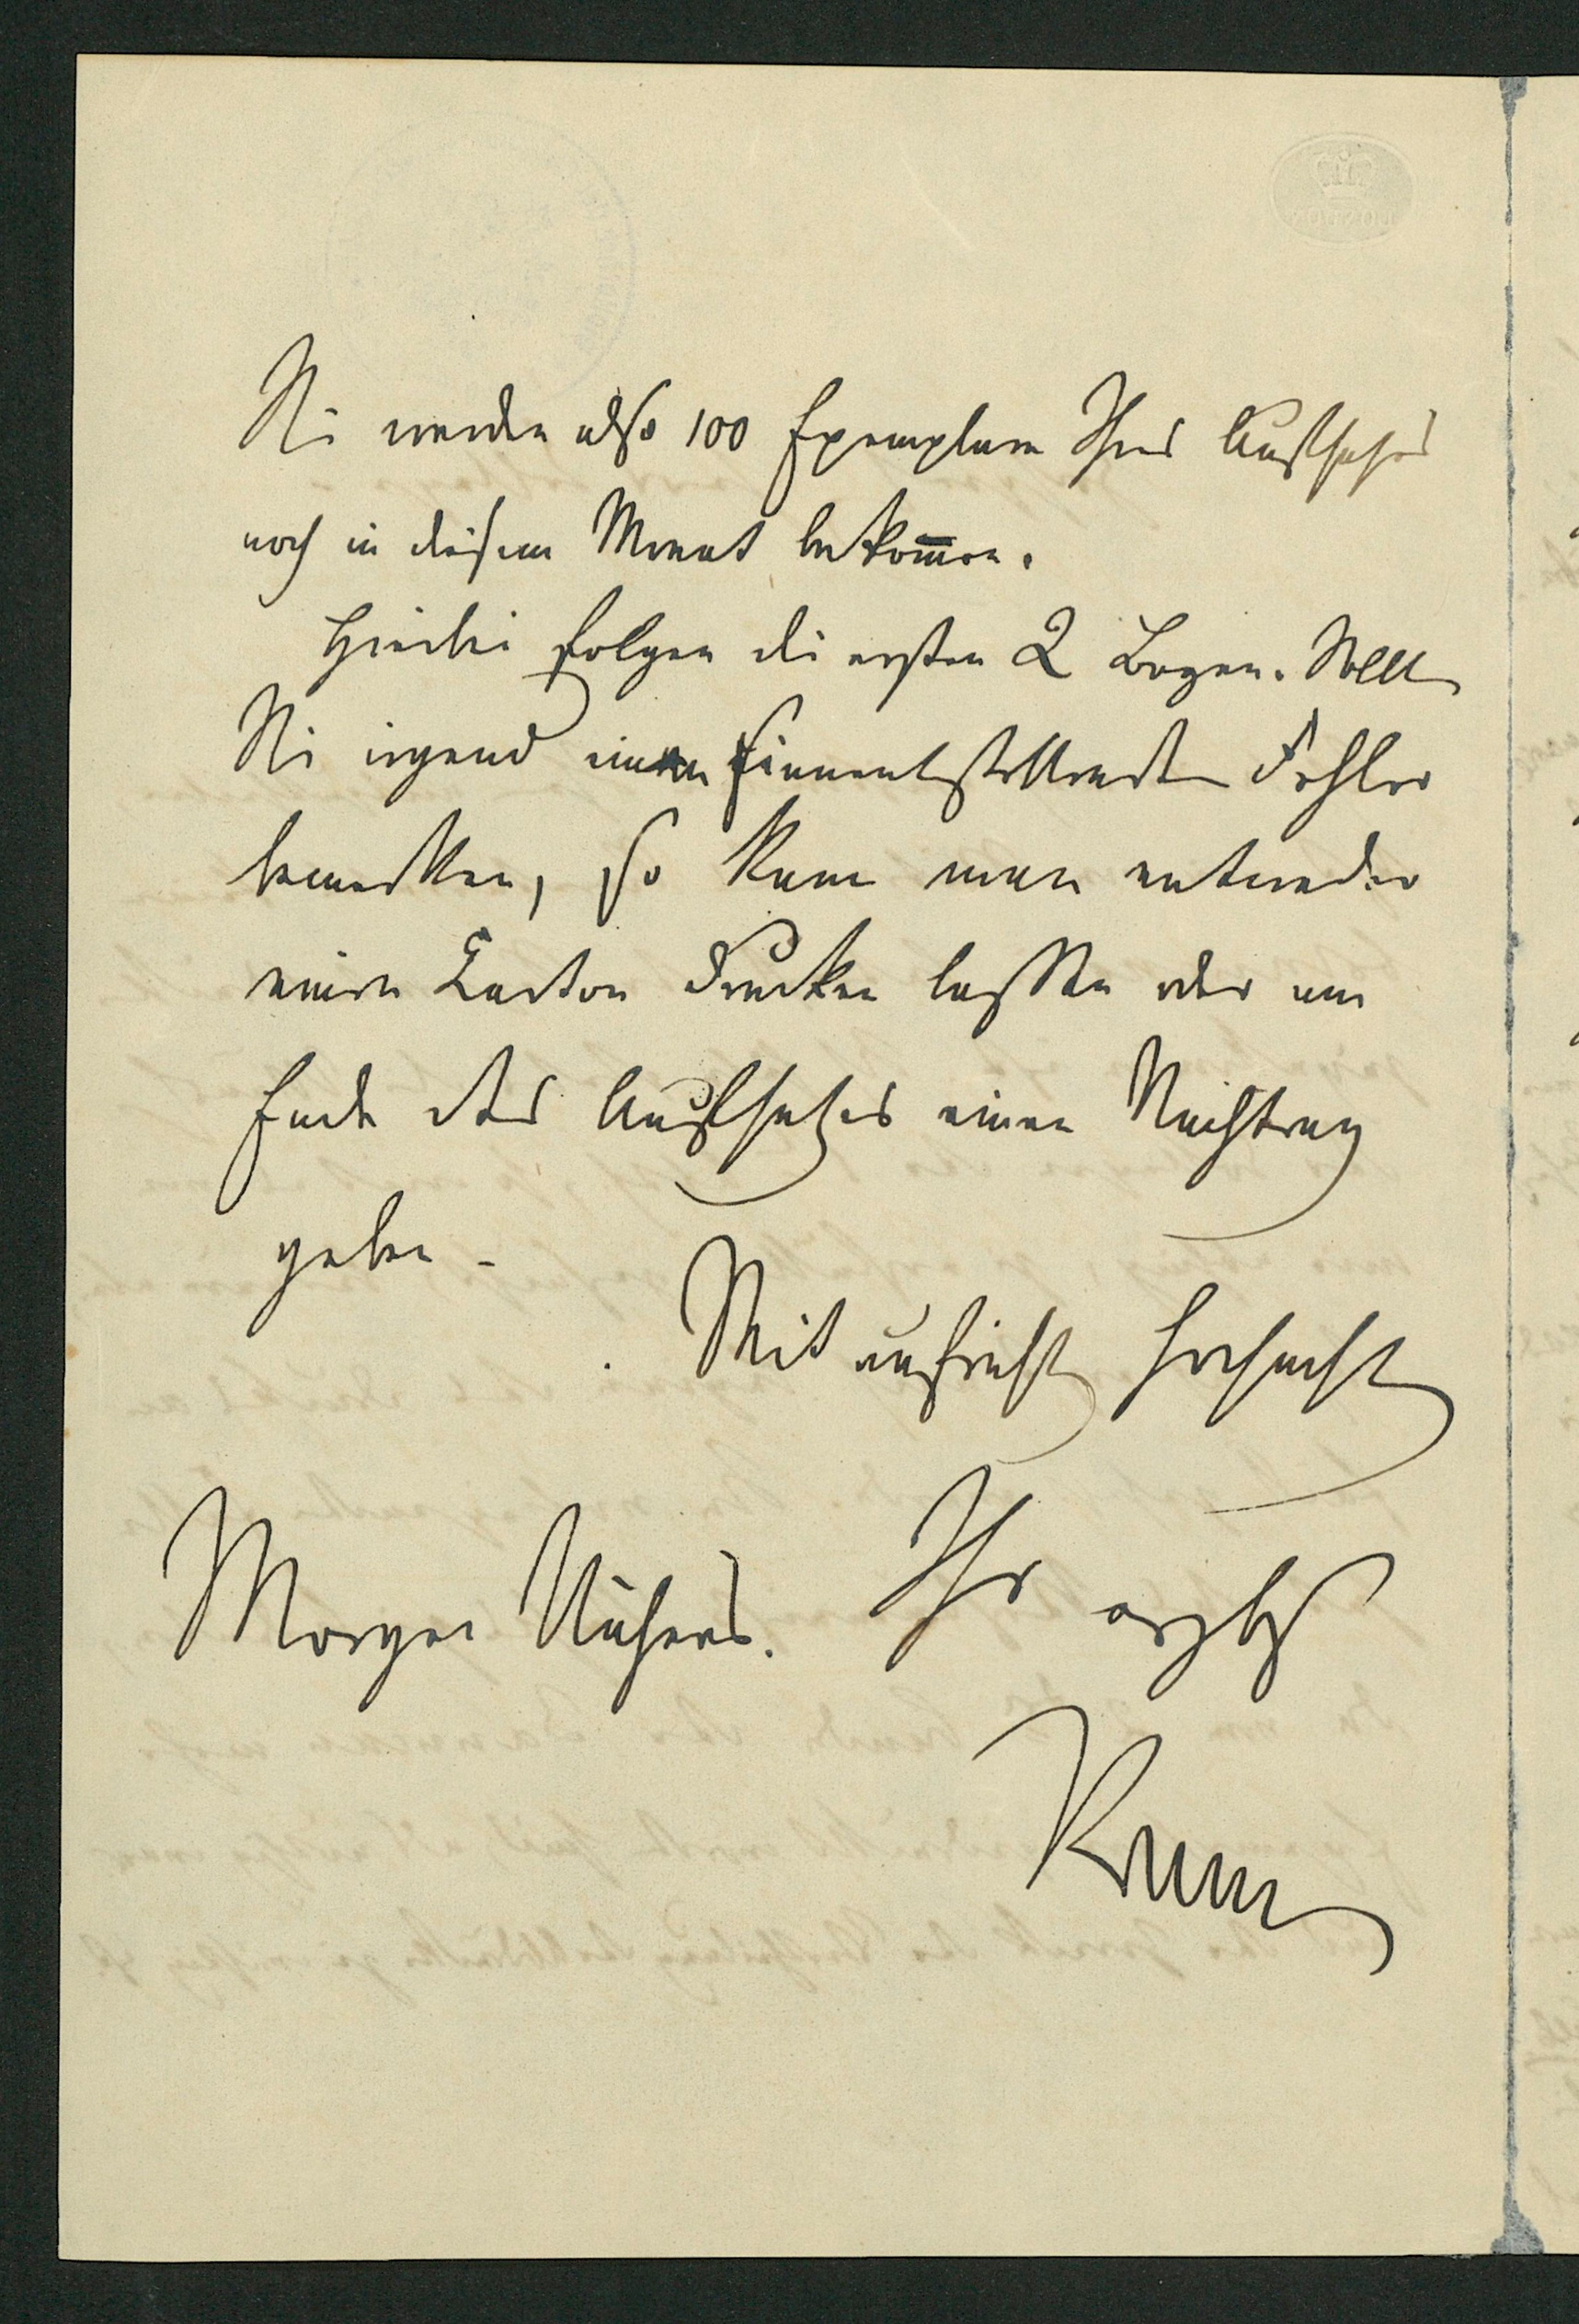 Sie werden also 100 Exemplare Ihres Aufsatzes
noch in diesem Monat bekom̄en.
Hierbei folgen die ersten 2 Bogen. Sollten
Sie irgend einen sinnentstellenden Fehler
bemerken, so kann man entweder
einen Carton drucken lassen oder am
Ende des Aufsatzes einen Nachtrag
geben.
Mit aufricht Hochacht
Morgen Näheres. Ihr ergbst